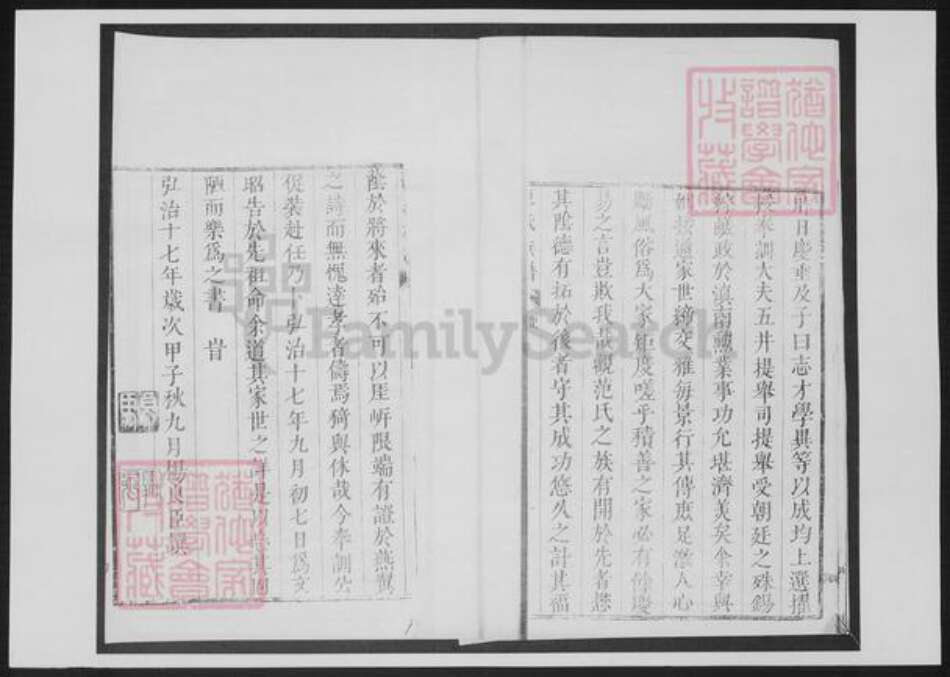 日慶垂及子曰志才學異等以成均上選擢
奉訓大夫五井提舉司提舉受朝廷之殊錫
鹺政於滇南勲業事功允堪濟美矣余幸與
接遞家世締交雅每景行其傳庶足激人心
風俗爲大家鉅度嗟乎積善之家必有餘慶
易之言豈欺我哉觀范氏之族有開於先者懋
其陰德有拓於後者守其成功悠久之計其福
蔭於將來者殆不可以崖岍限端有證於燕翼
之詩而無愧達孝者儔焉猗與休哉今奉訓公
促裝赴任乃 弘治十七年九月初七日爲文
昭告於先祖命余道其家世之詳是以忘其固
陋而樂爲之書 旹
弘治十七年歲次甲子秋九月楊 臣撰
譜學會
收藏
譜學會
收藏
FamilySearch